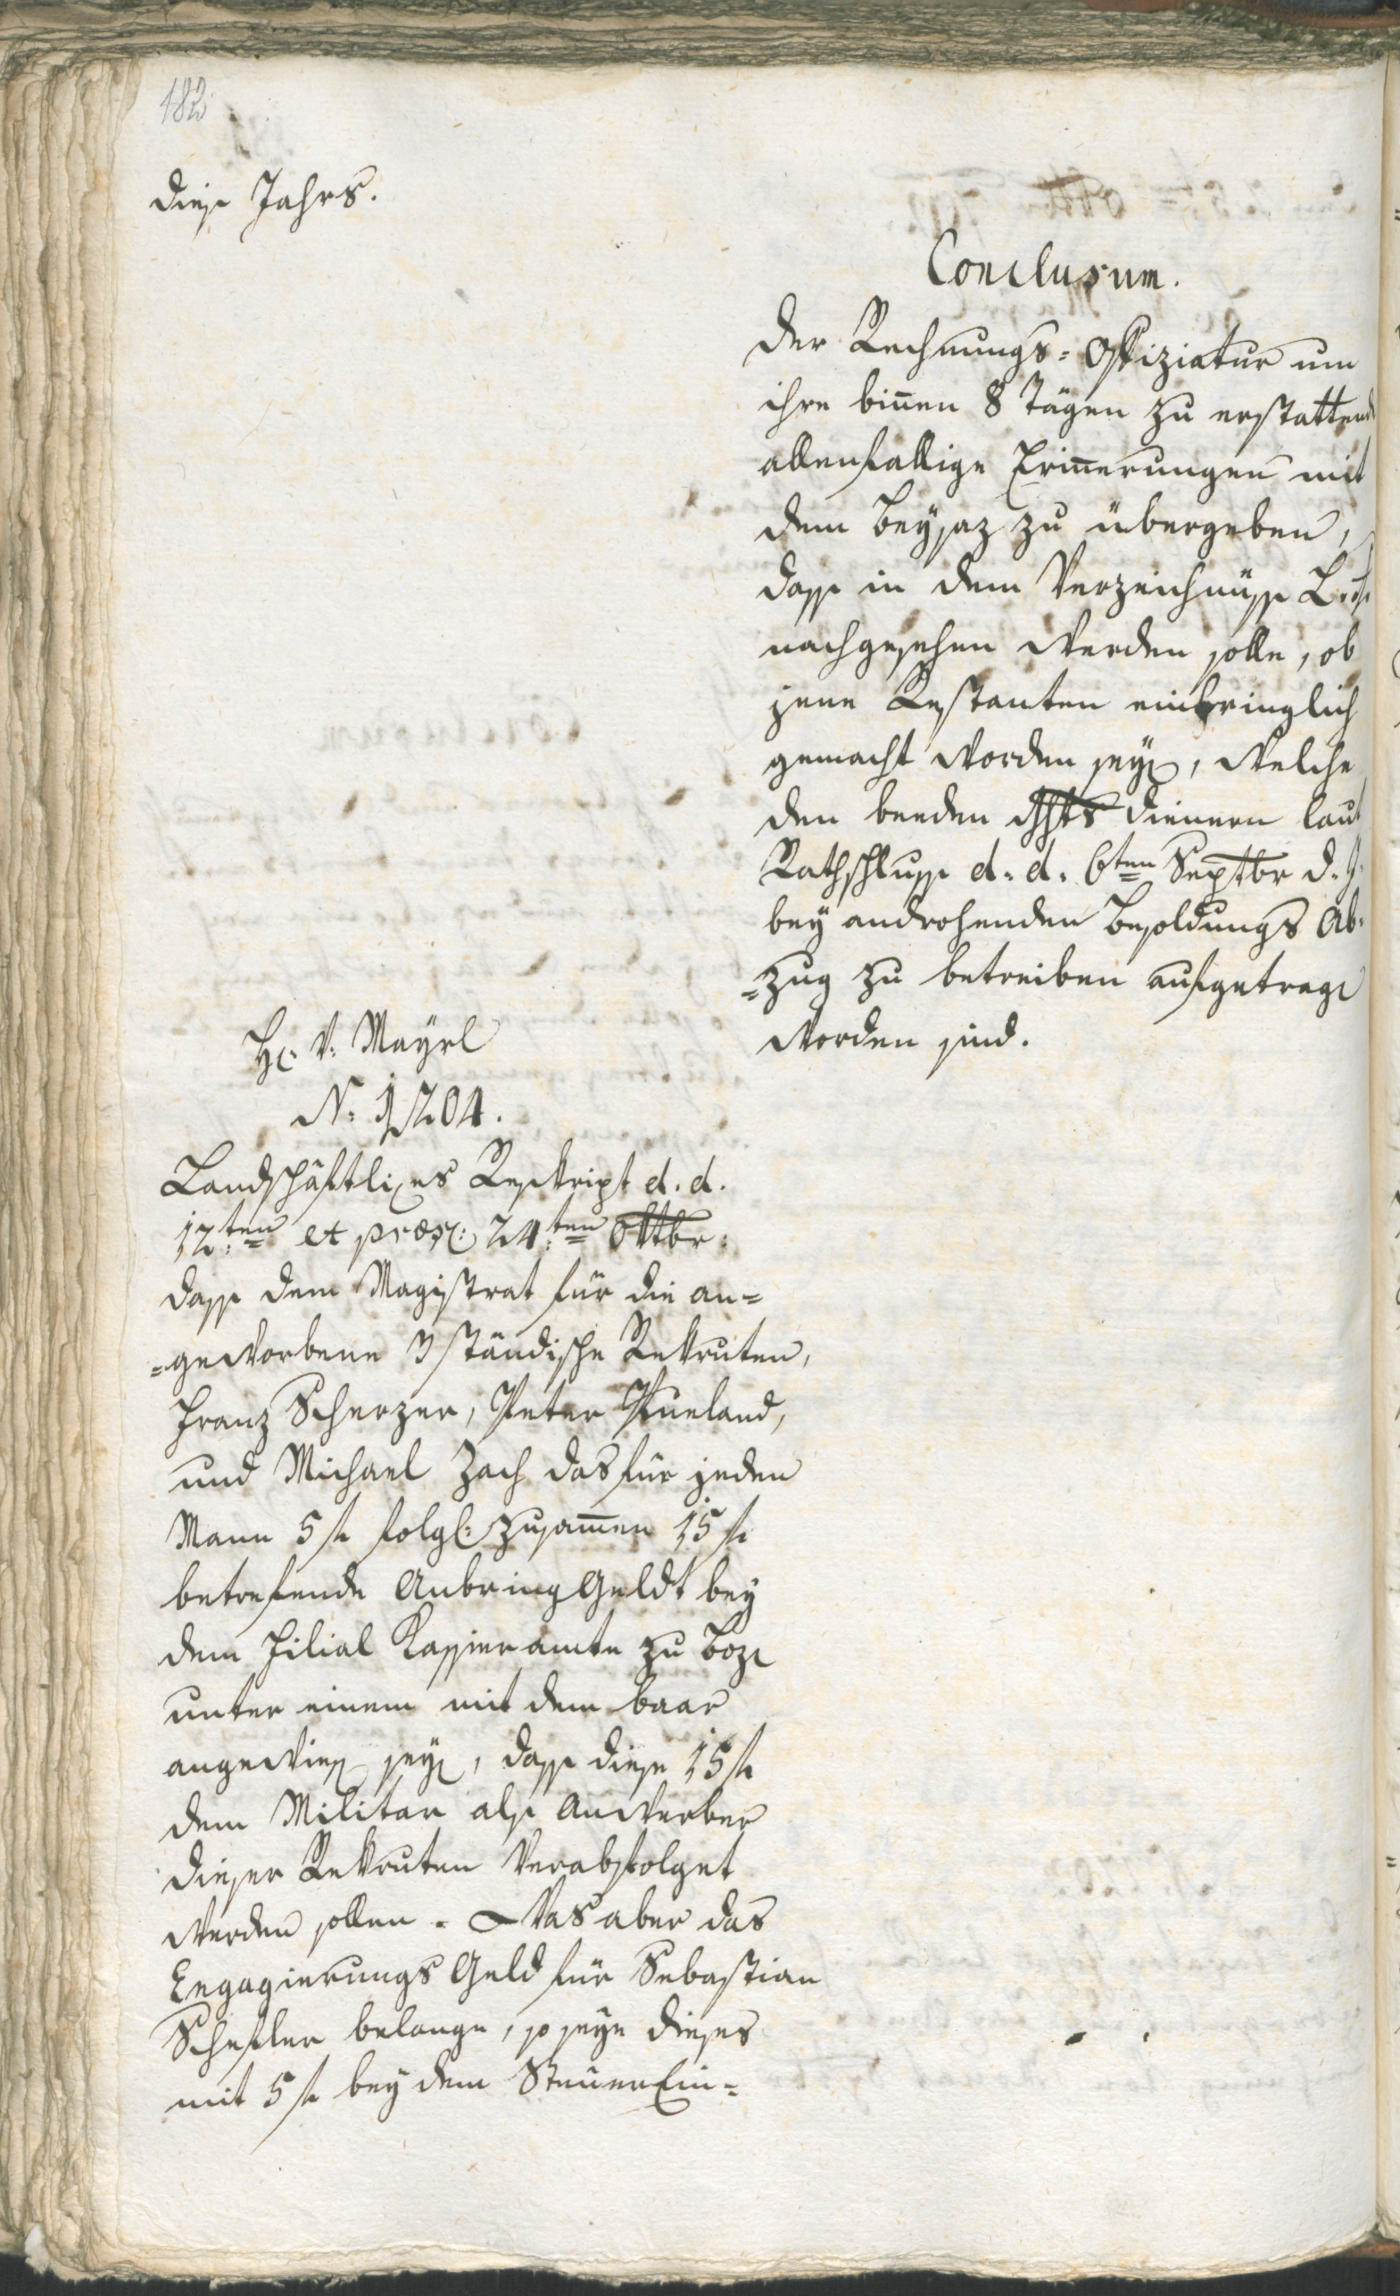 182
diese Jahrs.
Conclusum.
Der Rechnungs-Offiziatur um
ihre binnen 8 Tägen zu erstattend
allenfallige Erinnerungen mit
dem Beysaz zu übergeben,
dass in dem Verzeichnüsse
nachgesehen werden solle, ob
jene Restanten einbringlich
gemacht worden seyn, welche
den beeden dienern laut
Rathschluss d. d. 6ten Septbr d. J.
bey androhenden Besoldungs Ab-
-zug zu betreiben aufgetragen
worden sind.
Hr. v. Mayrl
N. 1204.
Landschäftliches Reskript d. d.
12:ten et præs: 24:ten Oktbr:
dass dem Magistrat für die an-
-geworbene 3 ständische Rekruten,
Franz Scherzer, Peter Pueland,
und Michael Zach das für jeden
Mann 5 f folgl: zusammen 15 f
betrefende Anbring Geldt bey
dem Filial Kassieramte zu Bozen
unter einem mit dem baar
angewiesen seyn, dass diese 15 f
dem Militar als Anwerber
dieser Rekruten verabfolget
werden sollen. Was aber das
Engagierungs Geld für Sebastian
Schesler belange, so seye dieses
mit 5 f bey dem Steuer Ein-